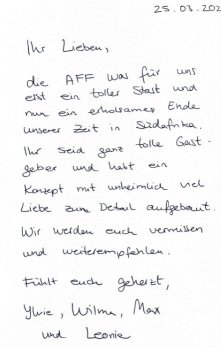 25.03.202
Ihr Lieben,
die AFF was für uns
erst ein toller Start und
nun ein erholsames Ende
unserer Zeit in Südafrika.
Ihr seid ganz tolle Gast-
geber und habt ein
Konzept mit unheimlich viel
Liebe zum Detail aufgebaut.
Wir werden euch vermissen
und weiterempfehlen.
Fühlt euch geherzt,
Ylvie, Wilma, Max
und Leonie